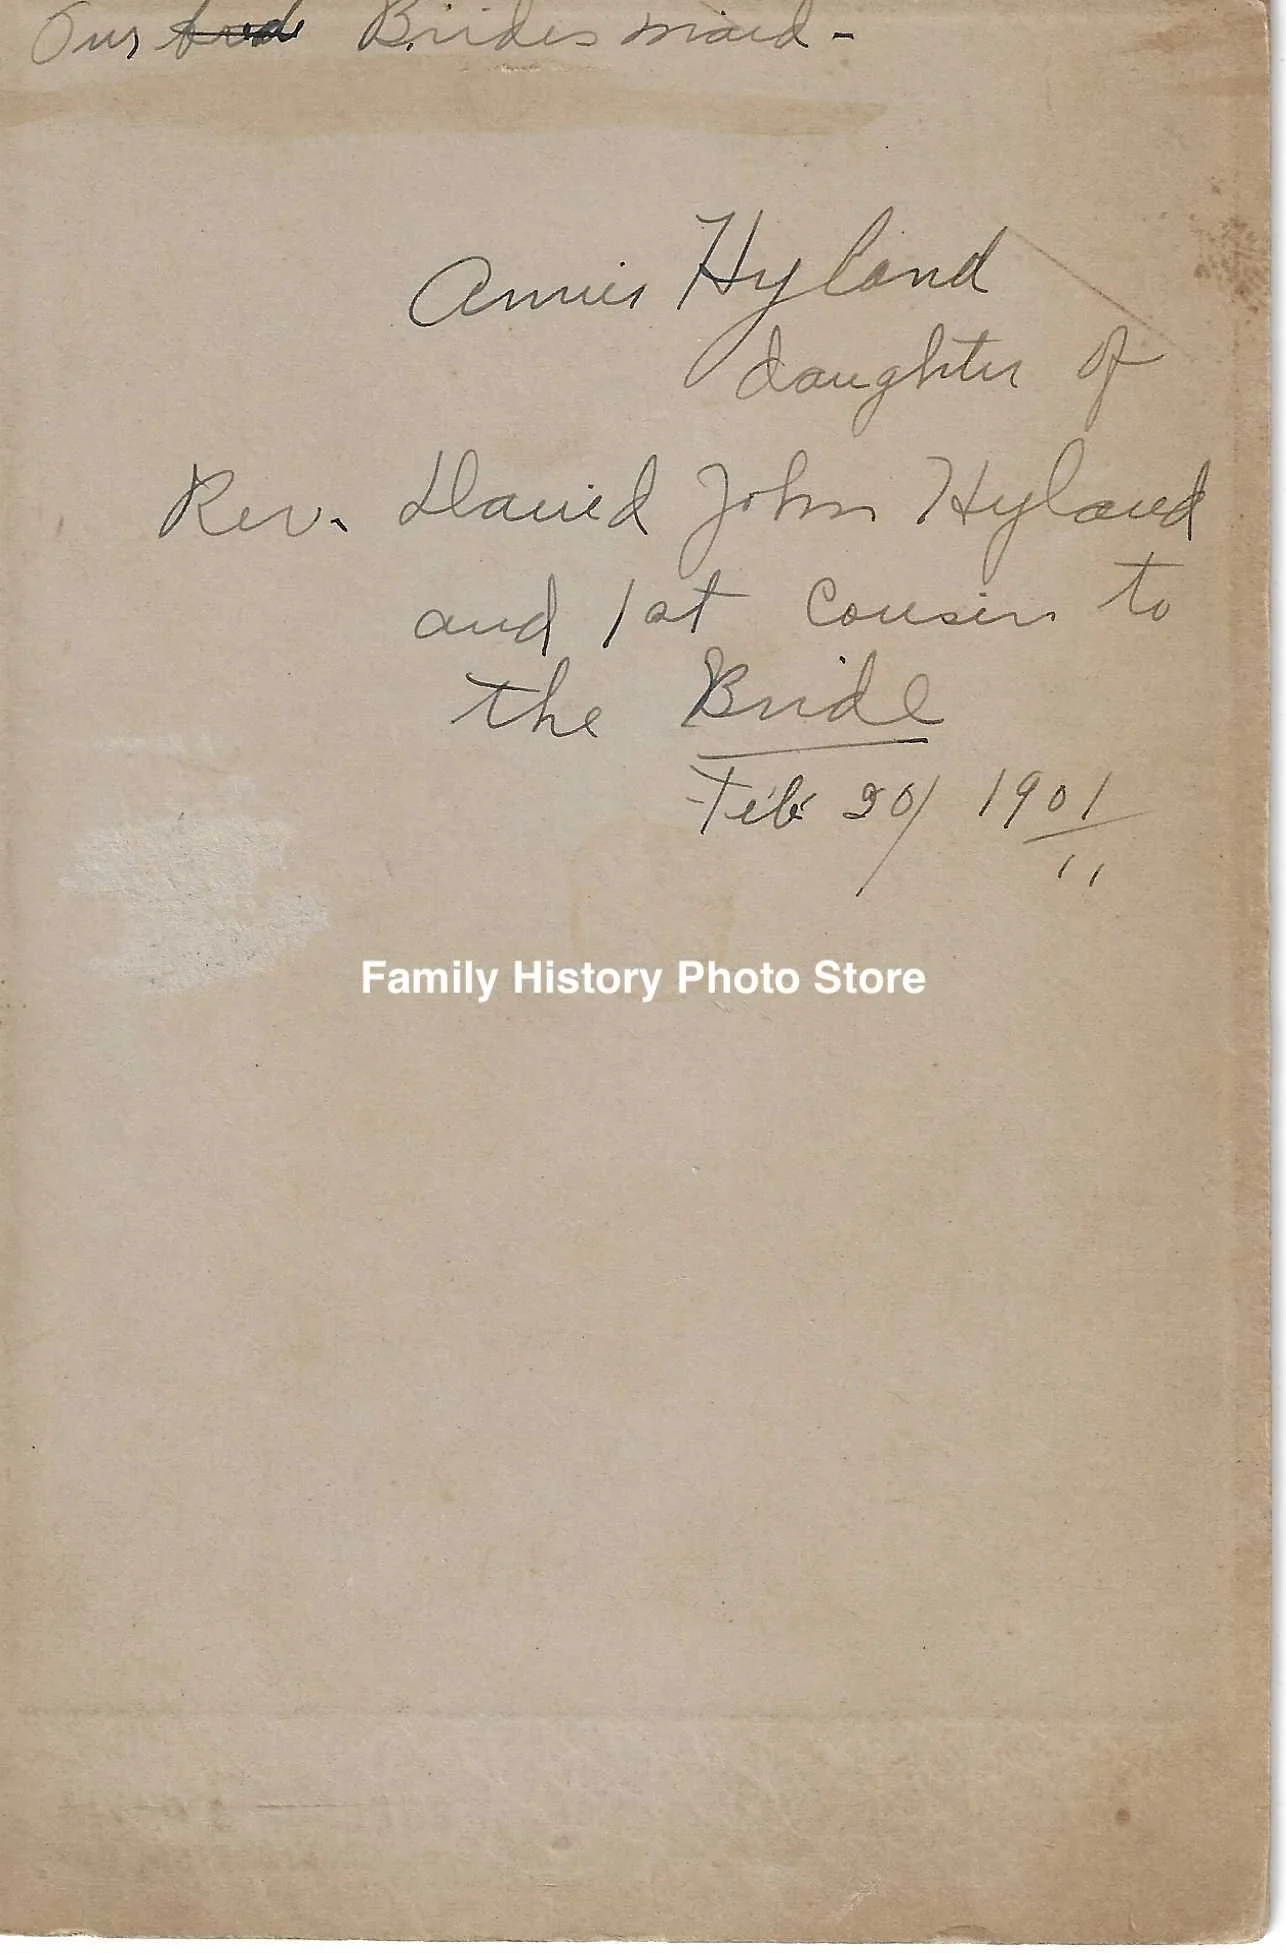 Our Bridesmaid -
Annie Hyland
daughter of
Rev. David John Hyland
and 1st Cousin to
the Bride
Feb 20/1901
"
Family History Photo Store